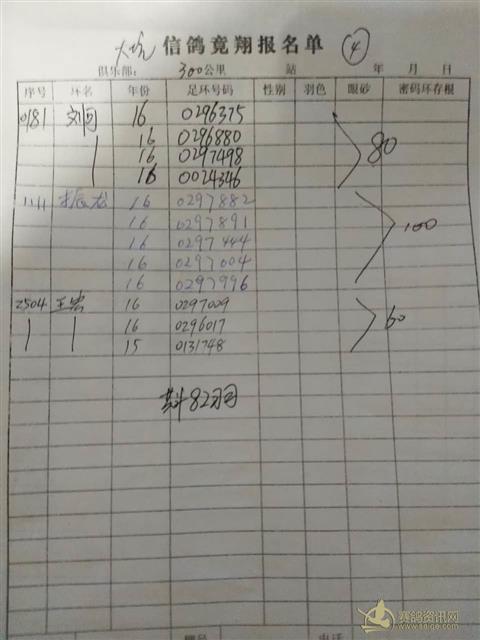 大坑 信鸽竞翔报名单 ④
俱乐部： 300公里 站 年 月 日
序号 环名 年份 足环号码 性别 羽色 眼砂 密码环存根
0181 刘 16 0296375
16 0296880
16 0297498
16 0024346
80
1111 龙 16 0297882
16 0297891
16 0297444
16 0297004
16 0297996
100
2504 王 16 0297009
16 0296017
15 0131748
60
共计82羽
电话
赛鸽资讯网
www.saige.com